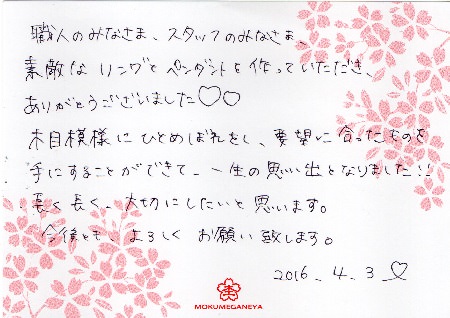 職人のみなさま、スタッフのみなさま、
素敵なリングとペンダントを作っていただき、
ありがとうございました♡♡
木目模様にひとめぼれをし、要望に合ったものを
手にすることができて、一生の思い出となりました!!
長く長く、大切にしたいと思います。
今後とも、よろしくお願い致します。
2016. 4. 3 ♡
MOKUMEGANEYA